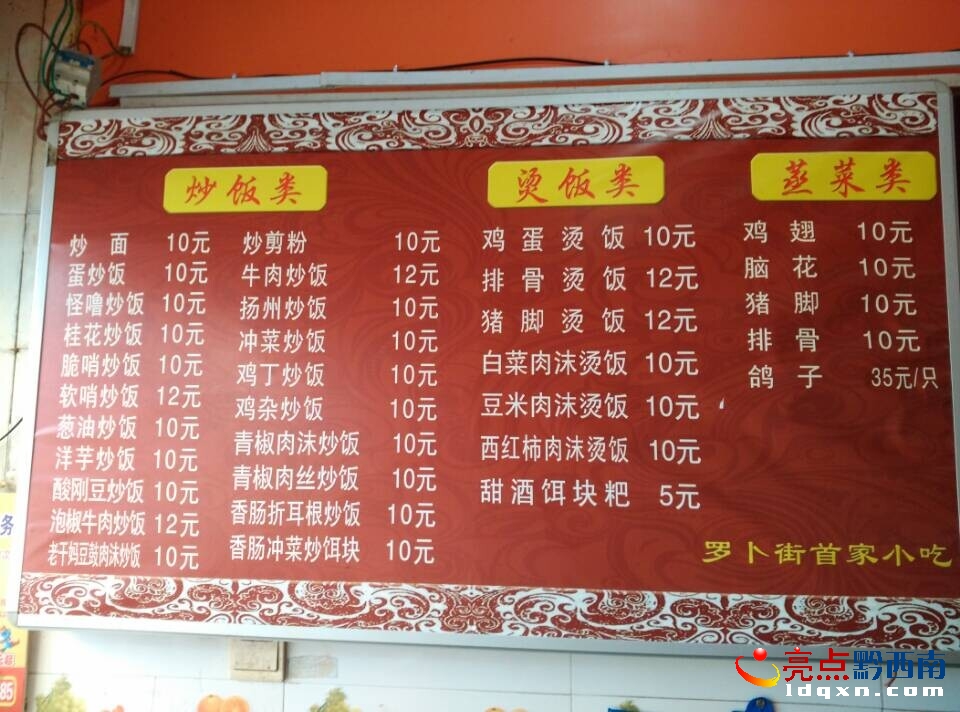 炒饭类
炒面 10元
蛋炒饭 10元
怪噜炒饭 10元
桂花炒饭 10元
脆哨炒饭 10元
软哨炒饭 12元
葱油炒饭 10元
洋芋炒饭 10元
酸刚豆炒饭 10元
泡椒牛肉炒饭 12元
老干妈豆鼓肉沫炒饭 10元
炒剪粉 10元
牛肉炒饭 12元
扬州炒饭 10元
冲菜炒饭 10元
鸡丁炒饭 10元
鸡杂炒饭 10元
青椒肉沫炒饭 10元
青椒肉丝炒饭 10元
香肠折耳根炒饭 10元
香肠冲菜炒饵块 10元
烫饭类
鸡蛋烫饭 10元
排骨烫饭 12元
猪脚烫饭 12元
白菜肉沫烫饭 10元
豆米肉沫烫饭 10元
西红柿肉沫烫饭 10元
甜酒饵块粑 5元
蒸菜类
鸡翅 10元
脑花 10元
猪脚 10元
排骨 10元
鸽子 35元/只
罗卜街首家小吃
务
85
亮点黔西南
ldqxn.com